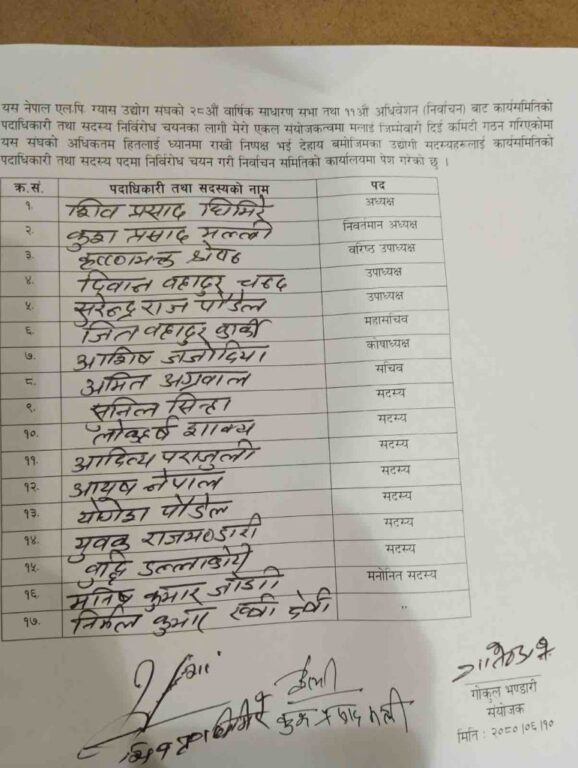 यस नेपाल एल.पि. ग्यास उद्योग संघको २८औं वार्षिक साधारण सभा तथा ११औं अधिवेशन (निर्वाचन) बाट कार्यसमितिको
पदाधिकारी तथा सदस्य निर्विरोध चयनका लागी मेरो एकल संयोजकत्वमा मलाई जिम्मेवारी दिई कमिटी गठन गरिएकोमा
यस संघको अधिकतम हितलाई ध्यानमा राखी निष्पक्ष भई देहाय बमोजिमका उद्योगी सदस्यहरुलाई कार्यसमितिको
पदाधिकारी तथा सदस्य पदमा निर्विरोध चयन गरी निर्वाचन समितिको कार्यालयमा पेश गरेको छु ।
क्र.सं. पदाधिकारी तथा सदस्यको नाम पद
१. शिव प्रसाद घिमिरे अध्यक्ष
२. कुश प्रसाद मल्ली निवर्तमान अध्यक्ष
३. कृष्णभक्त श्रेष्ठ वरिष्ठ उपाध्यक्ष
४. दिवान बहादुर चन्द उपाध्यक्ष
५. सुरेन्द्र राज पौडेल उपाध्यक्ष
६. जित बहादुर कार्की महासचिव
७. आशिष जाजोदिया कोषाध्यक्ष
८. अमित अग्रवाल सचिव
९. सुनिल सिन्हा सदस्य
१०. शाक्य सदस्य
११. आदित्य पराजुली सदस्य
१२. आयुष नेपाल सदस्य
१३. पौडेल सदस्य
१४. युवक राजभण्डारी सदस्य
१५. सदस्य
१६. मनिष कुमार मनोनित सदस्य
१७. निर्मल कुमार ,,
गोकुल भण्डारी
संयोजक
मिति : २०८०/०६/१०